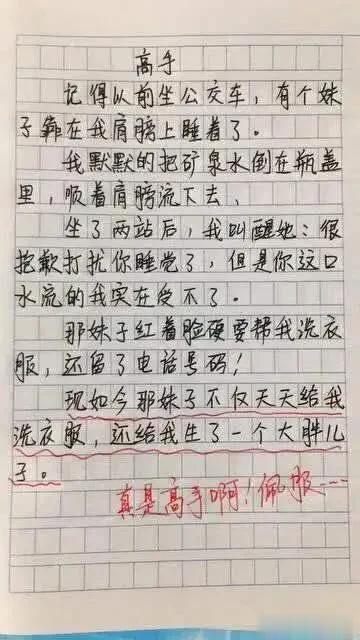 高手
记得以前坐公交车，有个妹
子靠在我肩膀上睡着了。
我默默的把矿泉水倒在瓶盖
里，顺着肩膀流下去、
坐了两站后，我叫醒她：很
抱歉打扰你睡觉了，但是你这口
水流的我实在受不了。
那妹子红着脸硬要帮我洗衣
服，还留了电话号码！
现如今那妹子不仅天天给我
洗衣服，还给我生了一个大胖儿
子。
真是高手啊！佩服……